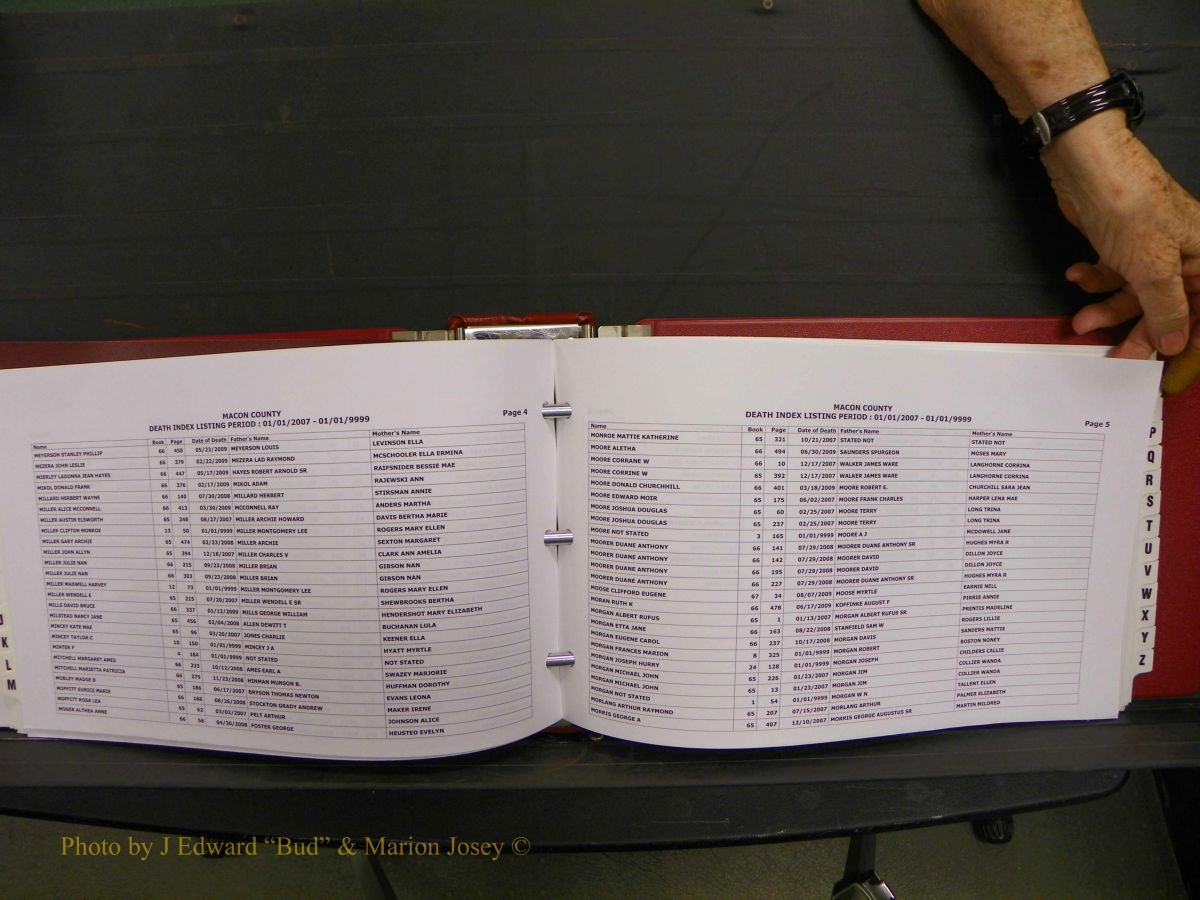 MACON COUNTY
DEATH INDEX LISTING PERIOD : 01/01/2007 - 01/01/9999
Page 4
Name Book Page Date of Death Father's Name Mother's Name
MEYERSON STANLEY PHILLIP 66 458 05/23/2009 MEYERSON LOUIS LEVINSON ELLA
MEZERA JOHN LESLIE 66 379 02/22/2009 MEZERA LAD RAYMOND MCSCHOOLER ELLA ERMINA
MIERLEY LADONNA JEAN HAYES 66 447 05/17/2009 HAYES ROBERT ARNOLD SR RAIFSNIDER BESSIE MAE
MIKOL DONALD FRANK 66 376 02/17/2009 MIKOL ADAM RAJEWSKI ANN
MILLARD HERBERT WAYNE 66 140 07/30/2008 MILLARD HERBERT STIRSMAN ANNIE
MILLER ALICE MCCONNELL 66 413 03/30/2009 MCCONNELL RAY ANDERS MARTHA
MILLER AUSTIN ELSWORTH 65 248 08/27/2007 MILLER ARCHIE HOWARD DAVIS BERTHA MARIE
MILLER CLIFTON MONROE 13 50 01/01/9999 MILLER MONTGOMERY LEE ROGERS MARY ELLEN
MILLER GARY ARCHIE 65 474 02/23/2008 MILLER ARCHIE SEXTON MARGARET
MILLER JOHN ALLYN 65 394 12/18/2007 MILLER CHARLES V CLARK ANN AMELIA
MILLER JULIE NAN 66 215 09/23/2008 MILLER BRIAN GIBSON NAN
MILLER JULIE NAN 66 303 09/23/2008 MILLER BRIAN GIBSON NAN
MILLER MAXWELL HARVEY 12 73 01/01/9999 MILLER MONTGOMERY LEE ROGERS MARY ELLEN
MILLER WENDELL E 65 215 07/20/2007 MILLER WENDELL E SR SHEWBROOKS BERTHA
MILLS DAVID BRUCE 66 337 01/12/2009 MILLS GEORGE WILLIAM HENDERSHOT MARY ELIZABETH
MILSTEAD NANCY JANE 65 456 02/04/2008 ALLEN DEWITT T BUCHANAN LULA
MINCEY KATE MAE 65 96 03/20/2007 JONES CHARLIE KEENER ELLA
MINCEY TAYLOR C 10 150 01/01/9999 MINCEY J A HYATT MYRTLE
MINTER F 4 184 01/01/9999 NOT STATED NOT STATED
MITCHELL MARGARET AMES 66 233 10/12/2008 AMES EARL A SWAZEY MARJORIE
MITCHELL MARIETTA PATRICIA 66 275 11/23/2008 HINMAN MUNSON B. HUFFMAN DOROTHY
MOBLEY MADGE B 65 186 06/17/2007 BRYSON THOMAS NEWTON EVANS LEONA
MOFFITT EUNICE MARIE 66 168 08/26/2008 STOCKTON GRADY ANDREW MAKER IRENE
MOFFITT ROSA LEA 65 62 03/02/2007 PELT ARTHUR JOHNSON ALICE
MOGER ALTHEA ANNE 66 58 04/30/2008 FOSTER GEORGE HEUSTED EVELYN
J
K
L
M
MACON COUNTY
DEATH INDEX LISTING PERIOD : 01/01/2007 - 01/01/9999
Page 5
Name Book Page Date of Death Father's Name Mother's Name
MONROE MATTIE KATHERINE 65 321 10/21/2007 STATED NOT STATED NOT
MOORE ALETHA 66 494 06/30/2009 SAUNDERS SPURGEON MOSES MARY
MOORE CORRANE W 66 10 12/17/2007 WALKER JAMES WARE LANGHORNE CORRINA
MOORE CORRINE W 65 392 12/17/2007 WALKER JAMES WARE LANGHORNE CORRINA
MOORE DONALD CHURCHHILL 66 401 03/18/2009 MOORE ROBERT E. CHURCHILL SARA JEAN
MOORE EDWARD MOIR 65 175 06/02/2007 MOORE FRANK CHARLES HARPER LENA MAE
MOORE JOSHUA DOUGLAS 65 60 02/25/2007 MOORE TERRY LONG TRINA
MOORE JOSHUA DOUGLAS 65 237 02/25/2007 MOORE TERRY LONG TRINA
MOORE NOT STATED 3 165 01/01/9999 MOORE A J MCDOWELL JANE
MOORER DUANE ANTHONY 66 141 07/29/2008 MOORER DUANE ANTHONY SR HUGHES MYRA R
MOORER DUANE ANTHONY 66 142 07/29/2008 MOORER DAVID DILLON JOYCE
MOORER DUANE ANTHONY 66 195 07/29/2008 MOORER DAVID DILLON JOYCE
MOORER DUANE ANTHONY 66 227 07/29/2008 MOORER DUANE ANTHONY SR HUGHES MYRA R
MOOSE CLIFFORD EUGENE 67 34 08/07/2009 MOOSE MYRTLE EARNIE NELL
MORAN RUTH K 66 478 06/17/2009 KOFFINKE AUGUST F PIRRIE ANNIE
MORGAN ALBERT RUFUS 65 1 01/13/2007 MORGAN ALBERT RUFUS SR PRENTIS MADELINE
MORGAN ETTA JANE 66 163 08/22/2008 STANFIELD SAM W ROGERS LILLIE
MORGAN EUGENE CAROL 66 237 10/17/2008 MORGAN DAVIS SANDERS MATTIE
MORGAN FRANCES MARION 8 325 01/01/9999 MORGAN ROBERT BOSTON NONEY
MORGAN JOSEPH HURRY 24 128 01/01/9999 MORGAN JOSEPH CHILDERS CALLIE
MORGAN MICHAEL JOHN 65 226 01/23/2007 MORGAN JIM COLLIER WANDA
MORGAN MICHAEL JOHN 65 13 01/23/2007 MORGAN JIM COLLIER WANDA
MORGAN NOT STATED 1 54 01/01/9999 MORGAN W N TALLENT ELLEN
MORLANG ARTHUR RAYMOND 65 207 07/15/2007 MORLANG ARTHUR PALMER ELIZABETH
MORRIS GEORGE A 65 407 12/10/2007 MORRIS GEORGE AUGUSTUS SR MARTIN MILDRED
P
Q
R
S
T
U
V
W
X
Y
Z
Photo by J Edward “Bud” & Marion Josey ©